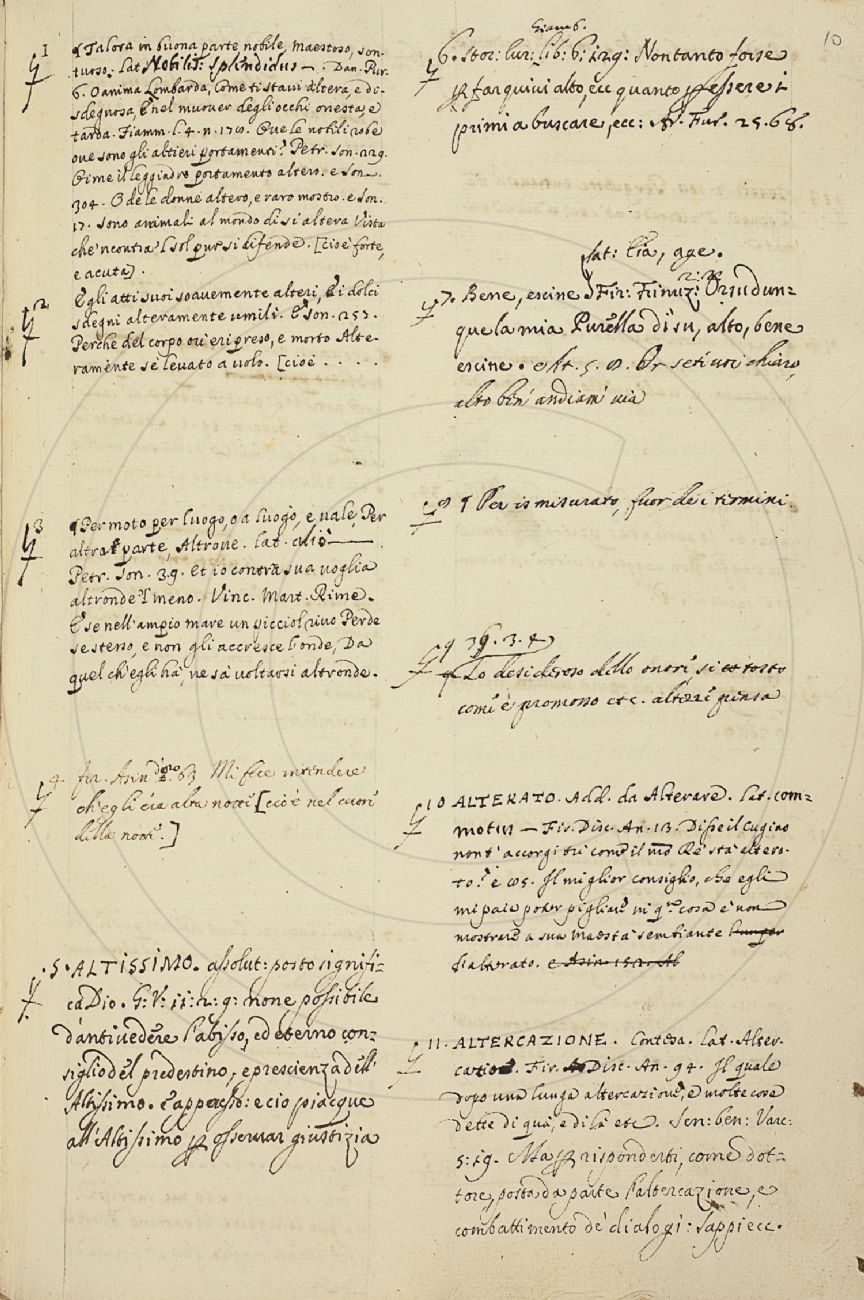 1 ¶ Talora in buona parte nobile, maestoso, son-
tuoso. Lat. Nobilis. splendidus — . Dan. Pur.
6. O anima Lombarda, Come ti stavi altera, e di-
sdegnosa, E nel muover degli occhi onesta, e
tarda. Fiamm. l. 4. n. 170. Ove le nobili robe
ove sono gli altieri portamenti? Petr. son. 229.
Oime il leggiadro portamento altero. e Son.
304. O de le donne altero, e raro mostro. e Son.
17. Sono animali al mondo di si altera Vista
che 'ncontra 'l sol pur si difende. [cioè forte,
e acuta].
2 E gli atti suoi soavemente alteri, E i dolci
sdegni alteramente umili. E Son. 253.
Perche del corpo ov' eri preso, e morto Alte-
ramente se' levato a volo. [cioè . . . .
3 ¶ Per moto per luogo, o a luogo, e vale, Per
altra parte, Altrove. Lat. aliò —
Petr. Son. 39. Et io contra sua voglia
altronde 'l meno. Vinc. Mart. Rime.
E se nell' ampio mare un picciol rivo Perde
se stesso, e non gli accresce l'onde, Da
quel ch' egli ha, ne sa voltarsi altronde.
4. fir. Asin d'oro. 63 Mi fece intendere
ch' egli era alta notte [cioè nel cuore
della notte.]
.5. ALTISSIMO. assolut: posto signifi-
ca Dio. G: V: 11: 2: 9: none possibile
d'antivedere l'abisso, ed eterno con-
siglio del predestino, e prescienza dell'
Altissimo. E appresso: e cio piacque
all' Altissimo per osservar giustizia
10
Giamb.
6. stor: Eur: lib: 6: 129: Non tanto forse
per farqui vi alto, ecc quanto per essere i
primi a buscare, ecc: Ar. Fur. 25. 68.
Lat: Eia, age.
7. Bene, escine Fir: Trinuzi: 2: 2 Orsu dun-
que la mia Purella di su, alto, bene
escine. Or
alto ben' andiam' via
8 ¶ Per ismisurato, fuor de i termini
9 36. 3. 4
¶ Lo desideroso dello onore, si tosto
com' è promosso etc. altezze pensa
10 ALTERATO. Add. da Alterare. Lat. com-
motus — Fir. Disc. An. 13. Disse il Cugino
non t' accorgi tu come il nro Re sta altera-
to? e 05. Il miglior consiglio, che egli
mi paia poter pigliare in q.ta cosa è non
mostrare a sua maestà sembiante
d'alterato. e Asin. 153. Al
11. ALTERCAZIONE. Contesa. Lat. Alter-
catio. Fir. Disc. An. 94. Il quale
dopo una lunga altercazione, e molte cose
dette di qua, e di là etc. Sen: ben: Varc:
5: 19. Ma per risponderti, come dot-
tore, posta da parte l'altercazione, e
combattimento de' dialogi: Sappi ecc.